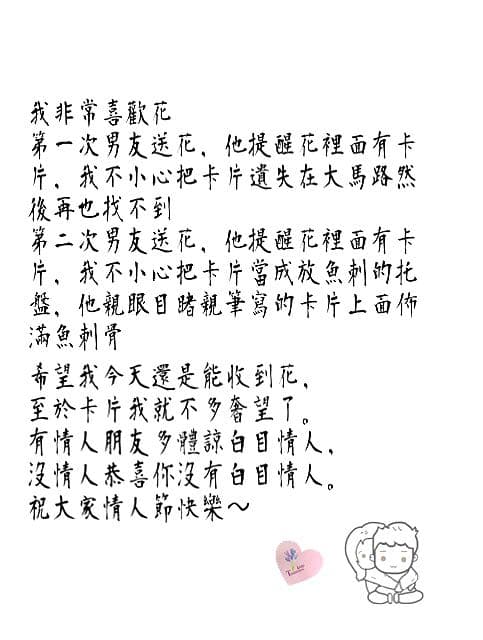 我非常喜歡花
第一次男友送花，他提醒花裡面有卡
片，我不小心把卡片遺失在大馬路然
後再也找不到
第二次男友送花，他提醒花裡面有卡
片，我不小心把卡片當成放魚刺的托
盤，他親眼目睹親筆寫的卡片上面佈
滿魚刺骨
希望我今天還是能收到花，
至於卡片我就不多奢望了。
有情人朋友多體諒白目情人，
沒情人恭喜你沒有白目情人。
祝大家情人節快樂～